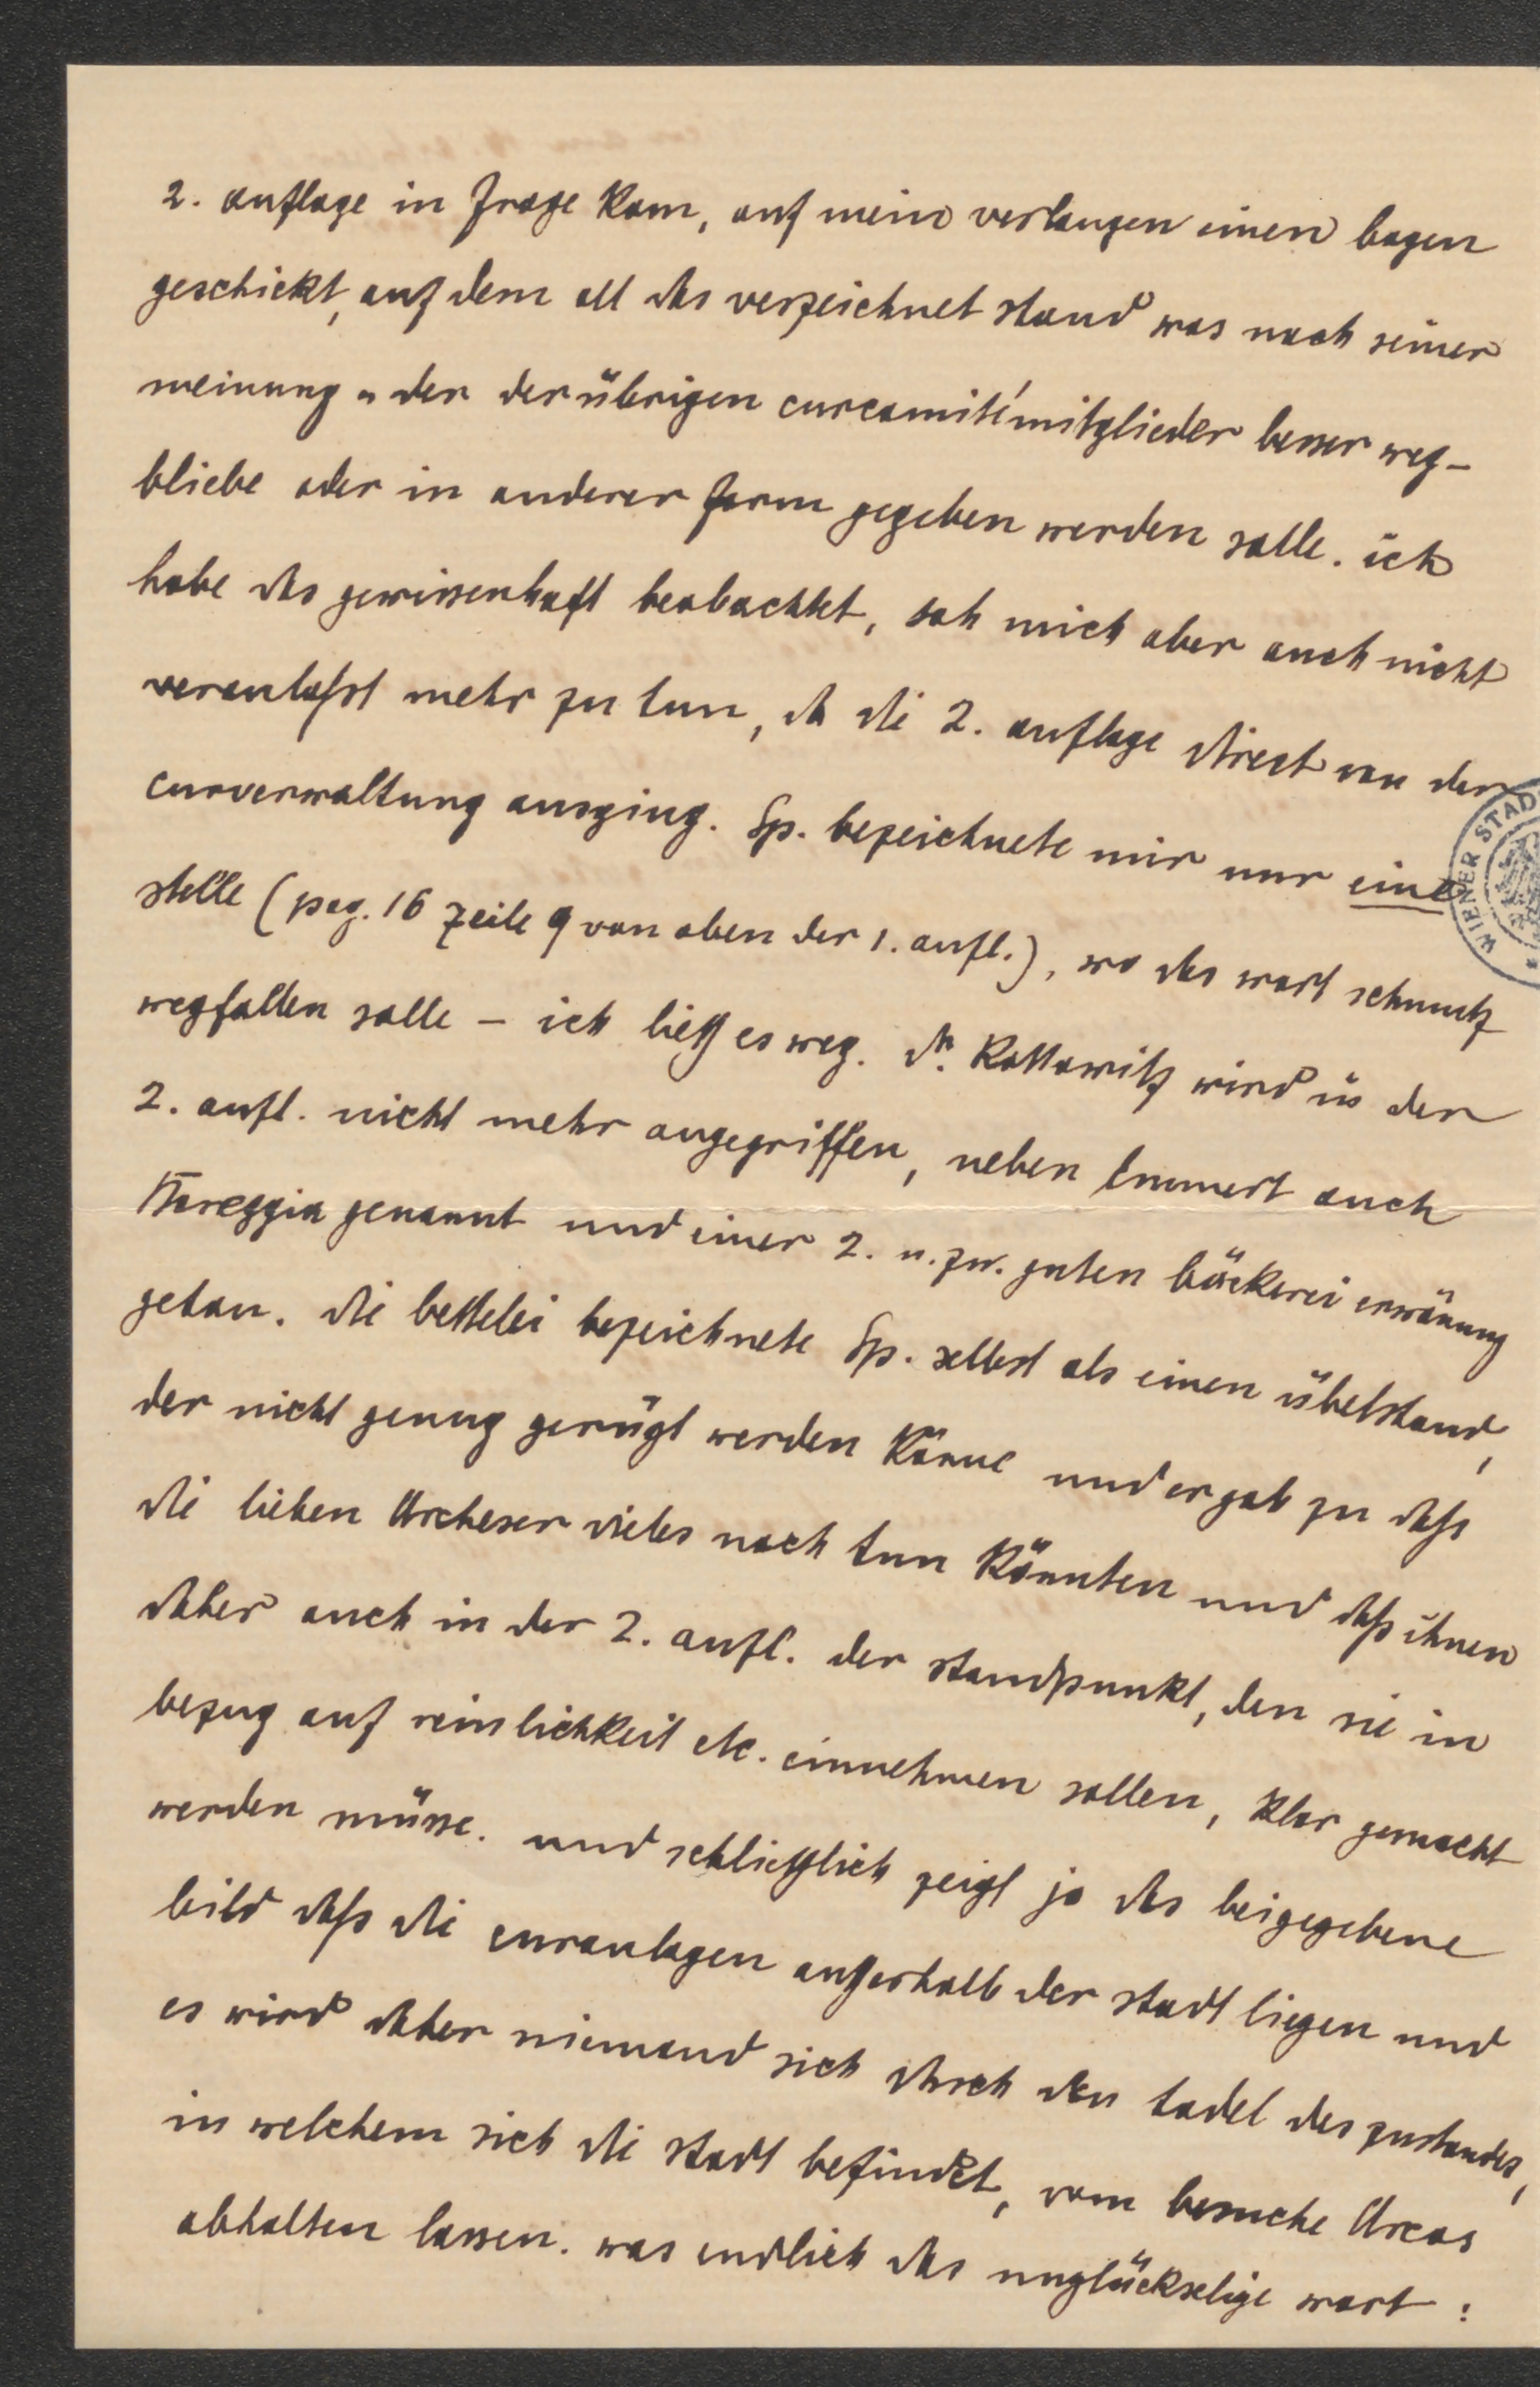 2. auflage in frage kam, auf mein verlangen einen bogen
geschickt, auf dem all das verzeichnet stand was nach seiner
meinung u der der übrigen curcomitémitglieder besser weg-
bliebe oder in anderer form gegeben werden solle. ich
habe das gewissenhaft beobachtet, sah mich aber auch nicht
veranlaßt mehr zu tun, da die 2. auflage direct von der
curverwaltung ausging. Sp. bezeichnete mir nur eine
stelle (pag. 16 zeile 9 von oben der 1. aufl.), wo das wort schmutz
wegfallen solle – ich ließ es weg. dr. Kottowitz wird in der
2. aufl. nicht mehr angegriffen, neben Emmert auch
Mareggia genannt und einer 2. u. zw. guten bäckerei erwänung
getan. die bettelei bezeichnete Sp. selbst als einen übelstand,
der nicht genug gerügt werden könne und er gab zu daß
die lieben Archeser vieles noch tun könnten und daß ihnen
daher auch in der 2. aufl. der standpunkt, den sie in
bezug auf reinlichkeit etc. einnehmen sollen, klar gemacht
werden müsse. und schließlich zeigt ja das beigegebene
bild daß die curanlagen außerhalb der stadt liegen und
es wird daher niemand sich durch den tadel des zustandes,
in welchem sich die stadt befindet, vom besuche Arcos
abhalten lassen. was endlich das unglückselige wort :
WIENER STAD